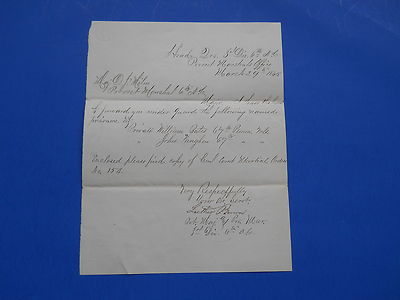 Head Qrs. 3d Div. 6th A.C.
Provost Marshals Office
March 29th 1865
Maj D.
Provost Marshal 6th A.C.
Major
I forward you under Guard the following named
prisoners, viz
Private William Bates 67th Penn Vols
" John Vaughan 67th " "
Enclosed please find copy of Genl Court Martial Order
No. 154.
Very Respectfully
Your Ob. Servt.
Luther
3d Div. 6th A.C.